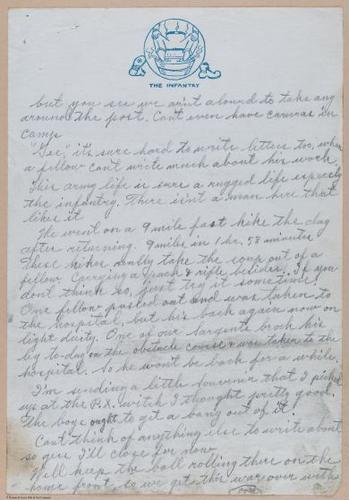 THE INFANTRY
but you see we ain't aloued to take any
around the post. Cant even have cameras in
camp
"Gee," it's sure hard to write letters too, when
a fellow cant write much about his work
This army life is sure a rugged life especely
the infantry. There isn't a man here that
likes it
We went on a 9 mile fast hike the day
after returning. 9 miles in 1 hr, 58 minutes
These hikes really take the soup out of a
fellow. Carrying a pack & rifle besides. If you
dont think so, just try it sometime!
One fellow passed out and was taken to
the hospital, but his back again now on
light duity. One of our sargents broke his
leg to-day in the obstacle course & was taken to the
hospital. So he won't be back for a while.
I'm sending a little souvenir that I picked
up at the P.X. witch I thought pretty good.
The boys ought to get a bang out of it!
Cant think of anything else to write about
so gess I'll close for now.
Well keep the ball rolling there on the
home front, so we get this war over with